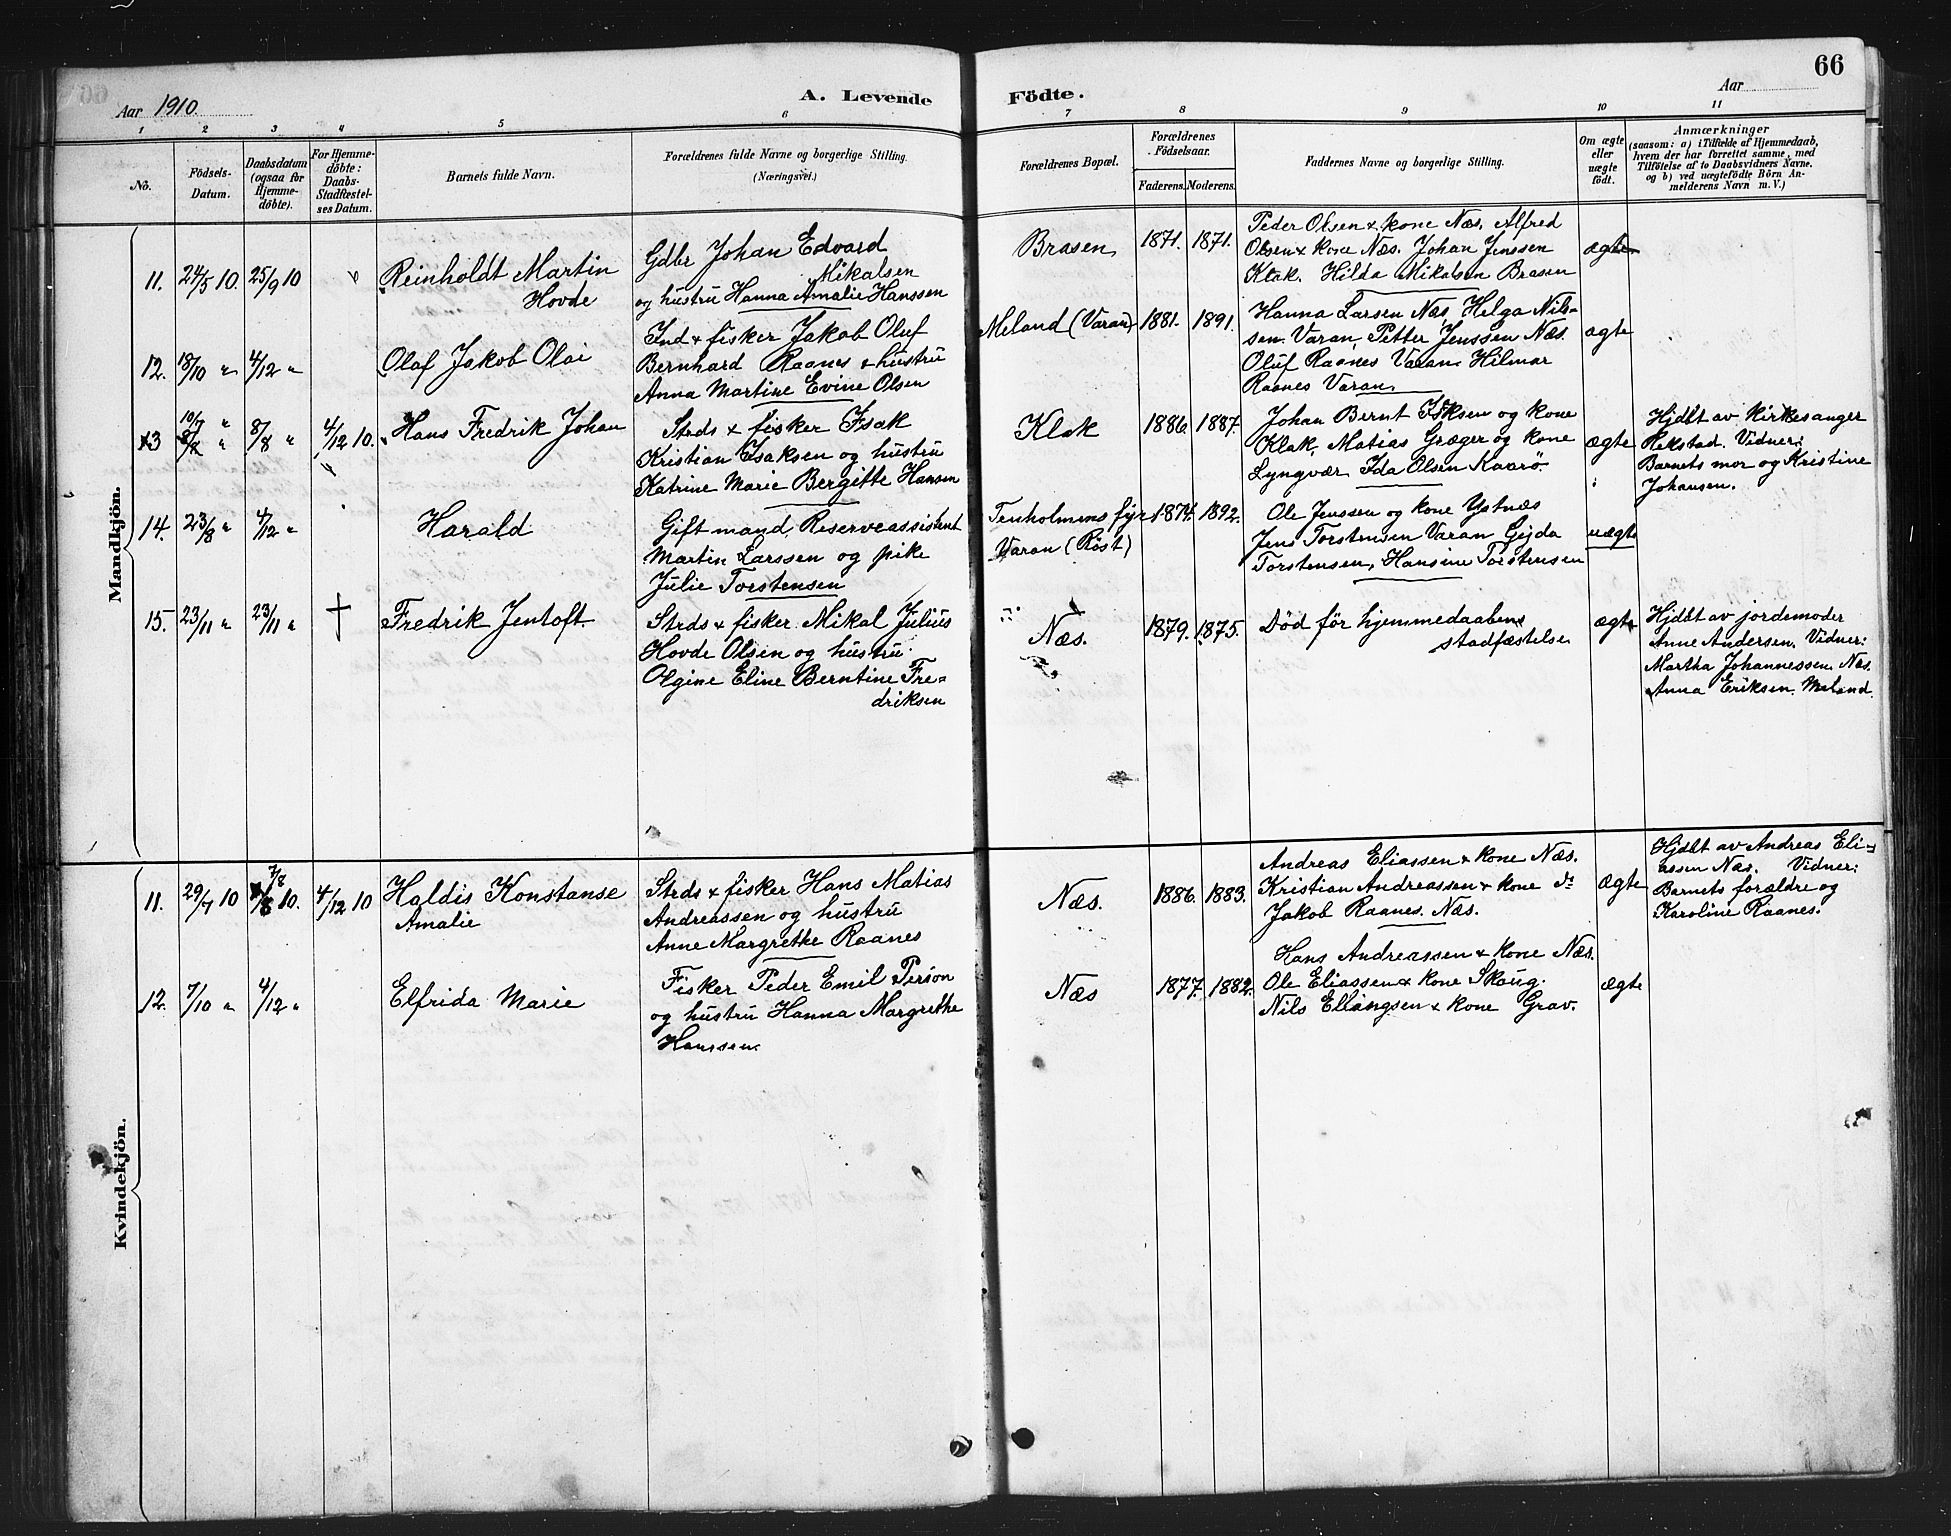 66
Aar 1910.
A. Levende Födte.
Aar
1 2 3 4 5 6 7 8 9 10 11
No.
Födsels-
Datum.
Daabsdatum
(ogsaa for
Hjemme-
döbte).
For Hjemme-
döbte:
Daabs-
Stadfæstel-
ses Datum.
Barnets fulde Navn.
Forældrenes fulde Navne og borgerlige Stilling.
(Næringsvei.)
Forældrenes Bopæl.
Forældrenes
Födselsaar.
Faderens. Moderens.
Faddernes Navne og borgerlige Stilling.
Om ægte
eller
uægte
födt.
Anmærkninger
(saasom: a) i Tilfælde af Hjemmedaab,
hvem der har forrettet samme, med
Tilföielse af to Daabsvidners Navne.
og b) ved uægtefödte Börn An-
melderens Navn m. V.)
Mandkjön.
11. 24/5 10. 25/9 10
Reinholdt Martin
Hovde
Gdbr Johan Edvard
Mikalsen
og hustru Hanna Amalie Hanssen
Brasen
1871. 1871.
Peder Olsen & kone Næs. Alfred
Olsen & kone Næs. Johan Jenssen
Klak. Hilda Mikalsen Brasen
ægte
12. 18/10 " 4/12 "
Olaf Jakob Olai
Ind & fisker Jakob Oluf
Bernhard Raanes & hustru
Anna Martine Evine Olsen
Meland (Varan)
1881. 1891.
Hanna Larsen Næs, Helga Nils-
sen. Varan, Petter Jenssen Næs.
Oluf Raanes Varan. Hilmar
Raanes Varan.
ægte
13 10/7 " 8/8 " 4/12 10.
Hans Fredrik Johan
Strds & fisker Isak
Kristian Isaksen og hustru
Katrine Marie Bergitte Hansen
Klak
1886. 1887.
Johan Bernt Isksen og kone
Klak, Matias Græger og kone
Lyngvær Ida Olsen Kaarö
ægte
Hjdbt av kirkesanger
Rekstad. Vidner:
Barnets mor og Kristine
Johansen.
14. 23/8 " 4/12 "
Harald
Gift mand, Reserveassistent
Martin Larssen og pike
Julie Torstensen
Tenholmens fyr
Varan (Röst)
1874. 1892.
Ole Jenssen og kone Ystnæs
Jens Torstensen Varan Gejda
Torstensen, Hansine Torstensen
uægte
15. 23/11 " 23/11 " †
Fredrik Jentoft
Strds & fisker Mikal Julius
Hovde Olsen og hustru
Olgine Eline Berntine Fre-
driksen
Næs.
1879. 1875.
Död för hjemmedaabens
stadfæstelse
ægte
Hjdbt av jordemoder
Anne Andersen. Vidner:
Martha Johannessen. Næs.
Anna Eriksen. Meland.
Kvindekjön.
11. 29/7 10 7/8 10. 4/12 10
Haldis Konstanse
Amalie
Strds & fisker Hans Matias
Andreassen og hustru
Anne Margrethe Raanes
Næs.
1886. 1883.
Andreas Eliassen & kone Næs.
Kristian Andreassen & kone do
Jakob Raanes. Næs.
ægte
Hjdbt av Andreas Eli-
assen Næs. Vidner:
Barnets forældre og
Karoline Raanes.
12. 7/10 " 4/12 "
Elfrida Marie
Fisker Peder Emil Person
og hustru Hanna Margrethe
Hanssen.
Næs
1877. 1882.
Hans Andreassen & kone Næs.
Ole Eliassen & kone Skaug.
Nils Ellingsen & kone Grav.
ægte